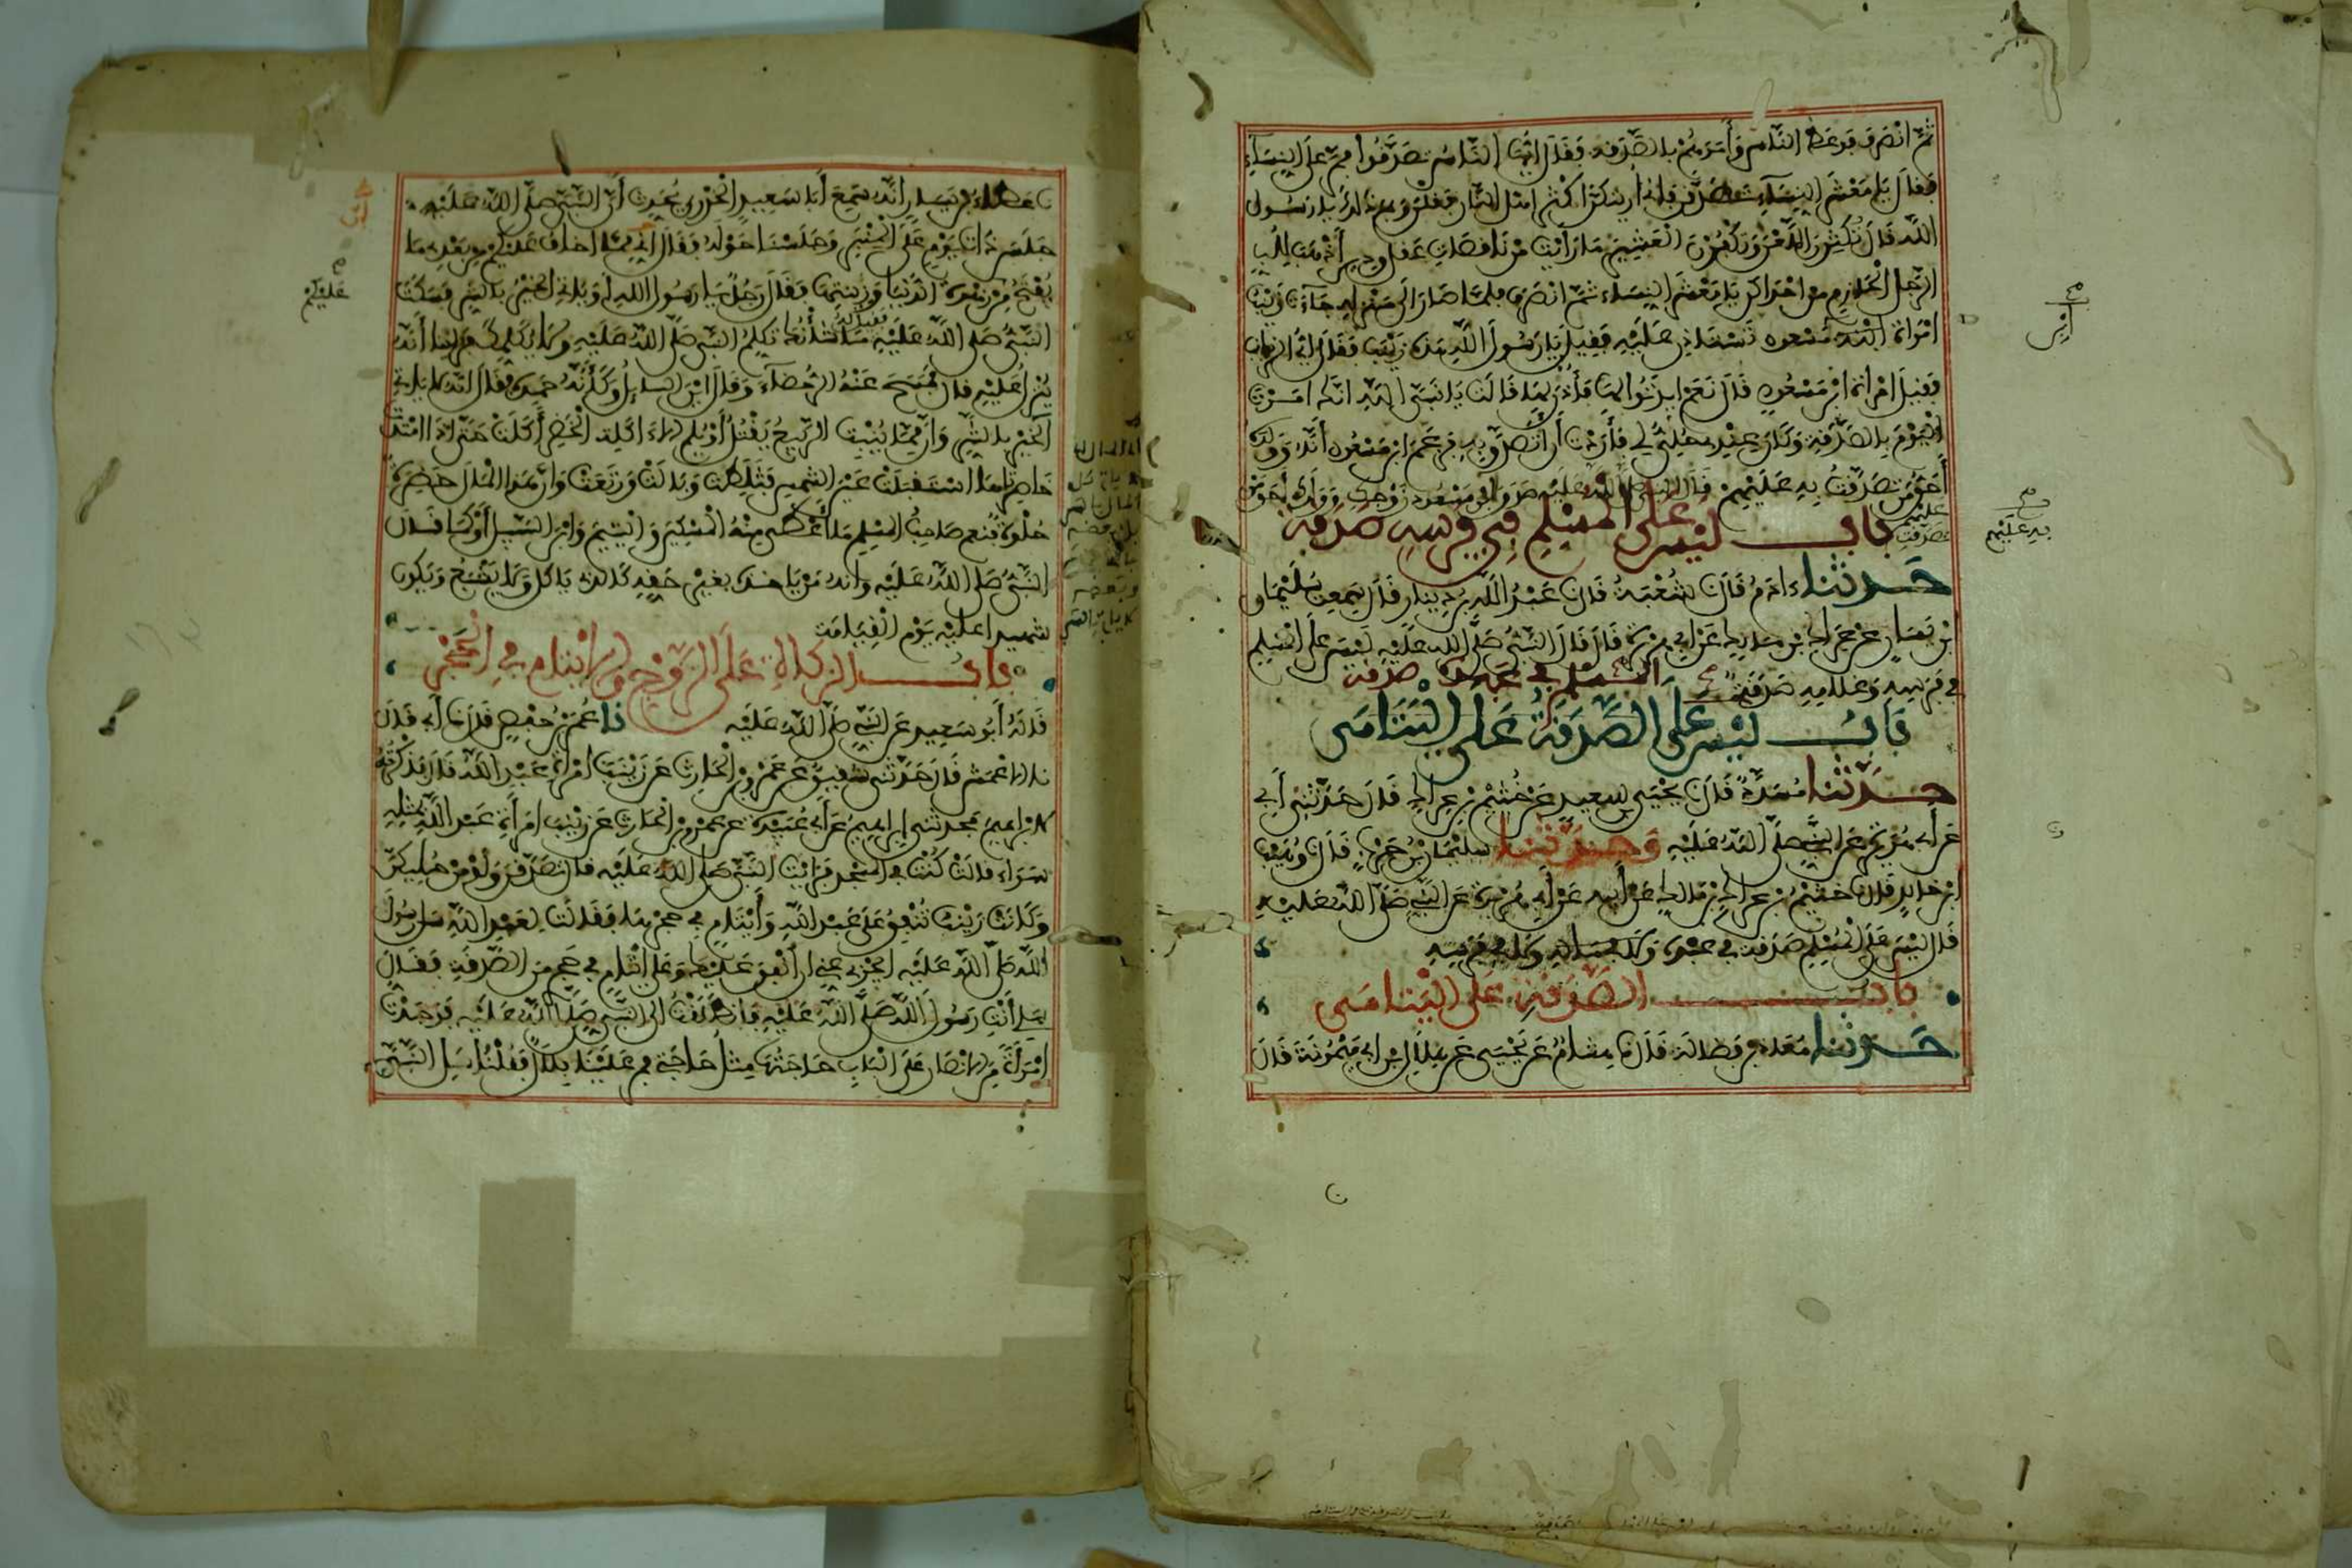 ثُمَّ انْصَرَفَ فَوَعَظَ النَّاسَ وَأَمَرَهُمْ بِالصَّدَقَةِ فَقَالَ أَيُّهَا النَّاسُ تَصَدَّقُوا فَمَرَّ عَلَى النِّسَاءِ
فَقَالَ يَا مَعْشَرَ النِّسَاءِ تَصَدَّقْنَ فَإِنِّي أُرِيتُكُنَّ أَكْثَرَ أَهْلِ النَّارِ فَقُلْنَ وَبِمَ ذَلِكَ يَا رَسُولَ
اللَّهِ قَالَ تُكْثِرْنَ اللَّعْنَ وَتَكْفُرْنَ الْعَشِيرَ مَا رَأَيْتُ مِنْ نَاقِصَاتِ عَقْلٍ وَدِينٍ أَذْهَبَ لِلُبِّ
الرَّجُلِ الْحَازِمِ مِنْ إِحْدَاكُنَّ يَا مَعْشَرَ النِّسَاءِ ثُمَّ انْصَرَفَ فَلَمَّا صَارَ إِلَى مَنْزِلِهِ جَاءَتْ زَيْنَبُ
امْرَأَةُ ابْنِ مَسْعُودٍ تَسْتَأْذِنُ عَلَيْهِ فَقِيلَ يَا رَسُولَ اللَّهِ هَذِهِ زَيْنَبُ فَقَالَ أَيُّ الزَّيَانِبِ
فَقِيلَ امْرَأَةُ ابْنِ مَسْعُودٍ قَالَ نَعَمْ ايذَنُوا لَهَا فَأُذِنَ لَهَا قَالَتْ يَا نَبِيَّ اللَّهِ إِنَّكَ أَمَرْتَ
الْيَوْمَ بِالصَّدَقَةِ وَكَانَ عِنْدِي حُلِيٌّ لِي فَأَرَدْتُ أَنْ أَتَصَدَّقَ بِهِ فَزَعَمَ ابْنُ مَسْعُودٍ أَنَّهُ وَوَلَدَهُ
أَحَقُّ مَنْ تَصَدَّقْتُ بِهِ عَلَيْهِمْ فَقَالَ النَّبِيُّ صَلَّى اللَّهُ عَلَيْهِ صَدَقَ ابْنُ مَسْعُودٍ زَوْجُكِ وَوَلَدُكِ أَحَقُّ مَنْ
تَصَدَّقْتِ عَلَيْهِمْ
بَابٌ لَيْسَ عَلَى الْمُسْلِمِ فِي فَرَسِهِ صَدَقَةٌ
حَدَّثَنَا ءَادَمُ قَالَ نا شُعْبَةُ قَالَ نا عَبْدُ اللَّهِ بْنُ دِينَارٍ قَالَ سَمِعْتُ سُلَيْمَانَ
بْنَ يَسَارٍ عَنْ عِرَاكِ بْنِ مَالِكٍ عَنْ أَبِي هُرَيْرَةَ قَالَ قَالَ النَّبِيُّ صَلَّى اللَّهُ عَلَيْهِ لَيْسَ عَلَى الْمُسْلِمِ
فِي فَرَسِهِ وَغُلَامِهِ صَدَقَةٌ
بَابٌ لَيْسَ عَلَى المسلم في عبده صدقة الصَّدَقَةُ عَلَى الْيَتَامَى
حَدَّثَنَا مُسَدَّدٌ قَالَ نا يَحْيَى بْنُ سَعِيدٍ عَنْ خُثَيْمِ بْنِ عِرَاكٍ قَالَ حَدَّثَنِي أَبِي
عَنْ أَبِي هُرَيْرَةَ عَنِ النَّبِيِّ صَلَّى اللَّهُ عَلَيْهِ وَحَدَّثَنَا سُلَيْمَانُ بْنُ حَرْبٍ قَالَ نا وُهَيْبُ
ابْنُ خَالِدٍ قَالَ نا خُثَيْمُ بْنُ عِرَاكِ بْنِ مَالِكٍ عَنْ أَبِيهِ عَنْ أَبِي هُرَيْرَةَ عَنِ النَّبِيِّ صَلَّى اللَّهُ عَلَيْهِ
قَالَ لَيْسَ عَلَى الْمُسْلِمِ صَدَقَةٌ فِي عَبْدِهِ وَلَا فِي فَرَسِهِ
بَابُ الصَّدَقَةِ عَلَى الْيَتَامَى
حَدَّثَنَا مُعَاذُ بْنُ فَضَالَةَ قَالَ نا هِشَامٌ عَنْ يَحْيَى عَنْ هِلَالِ بْنِ أَبِي مَيْمُونَةَ قَالَ
نا عَطَاءُ بْنُ يَسَارٍ أَنَّهُ سَمِعَ أَبَا سَعِيدٍ الْخُدْرِيَّ يُحَدِّثُ أَنَّ النَّبِيَّ صَلَّى اللَّهُ عَلَيْهِ
جَلَسَ ذَاتَ يَوْمٍ عَلَى الْمِنْبَرِ وَجَلَسْنَا حَوْلَهُ فَقَالَ إِنِّي مِمَّا أَخَافُ عَلَيْكُمْ مِنْ بَعْدِي مَا
يُفْتَحُ مِنْ زَهْرَةِ الدُّنْيَا وَزِينَتِهَا فَقَالَ رَجُلٌ يَا رَسُولَ اللَّهِ أَوَيَأْتِي الْخَيْرُ بِالشَّرِّ فَسَكَتَ
النَّبِيُّ صَلَّى اللَّهُ عَلَيْهِ فقيل له مَا شَأْنُكَ تُكَلِّمُ النَّبِيَّ صَلَّى اللَّهُ عَلَيْهِ وَلَا يُكَلِّمُكَ فَرَأَيْنَا أَنَّهُ
يُنْزَلُ عَلَيْهِ قَالَ فَمَسَحَ عَنْهُ الرُّحَضَاءَ وَقَالَ أَيْنَ السَّائِلُ وَكَأَنَّهُ حَمِدَهُ فَقَالَ إِنَّهُ لَا يَأْتِي
الْخَيْرُ بِالشَّرِّ وَإِنَّ مِمَّا يُنْبِتُ الرَّبِيعُ يَقْتُلُ أَوْ يُلِمُّ إِلَّا آكِلَةَ الْخَضِرِ أَكَلَتْ حَتَّى إِذَا امْتَدَّتْ
خَاصِرَتَاهَا اسْتَقْبَلَتْ عَيْنَ الشَّمْسِ فَثَلَطَتْ وَبَالَتْ وَرَتَعَتْ وَإِنَّ هَذَا الْمَالَ خَضِرَةٌ
حُلْوَةٌ فَنِعْمَ صَاحِبُ الْمُسْلِمِ مَا أَعْطَى مِنْهُ الْمِسْكِينَ وَالْيَتِيمَ وَابْنَ السَّبِيلِ أَوْ كَمَا قَالَ
النَّبِيُّ صَلَّى اللَّهُ عَلَيْهِ وَإِنَّهُ مَنْ يَأْخُذُهُ بِغَيْرِ حَقِّهِ كَالَّذِي يَأْكُلُ وَلَا يَشْبَعُ وَيَكُونُ
شَهِيدًا عَلَيْهِ يَوْمَ الْقِيَامَةِ
بَابُ الزَّكَاةِ عَلَى الزَّوْجِ وَالْأَيْتَامِ فِي الْحَجْرِ
قَالَهُ أَبُو سَعِيدٍ عَنِ النَّبِيِّ صَلَّى اللَّهُ عَلَيْهِ نا عُمَرُ بْنُ حَفْصٍ قَالَ نا أَبِي قَالَ
نا الْأَعْمَشُ قَالَ حَدَّثَنِي شَقِيقٌ عَنْ عَمْرِو بْنِ الْحَارِثِ عَنْ زَيْنَبَ امْرَأَةِ عَبْدِ اللَّهِ قَالَ فَذَكَرْتُهُ
لِإِبْرَاهِيمَ فَحَدَّثَنِي إِبْرَاهِيمُ عَنْ أَبِي عُبَيْدَةَ عَنْ عَمْرِو بْنِ الْحَارِثِ عَنْ زَيْنَبَ امْرَأَةِ عَبْدِ اللَّهِ بِمِثْلِهِ
سَوَاءً قَالَتْ كُنْتُ فِي الْمَسْجِدِ فَرَأَيْتُ النَّبِيَّ صَلَّى اللَّهُ عَلَيْهِ قَالَ تَصَدَّقْنَ وَلَوْ مِنْ حُلِيِّكُنَّ
وَكَانَتْ زَيْنَبُ تُنْفِقُ عَلَى عَبْدِ اللَّهِ وَأَيْتَامٍ فِي حَجْرِهَا فَقَالَتْ لِعَبْدِ اللَّهِ سَلْ رَسُولَ
اللَّهِ صَلَّى اللَّهُ عَلَيْهِ أَيَجْزِي عَنِّي أَنْ أُنْفِقَ عَلَيْكَ وَعَلَى أَيْتَامٍ فِي حَجْرِي مِنَ الصَّدَقَةِ فَقَالَ
سَلِي أَنْتِ رَسُولَ اللَّهِ صَلَّى اللَّهُ عَلَيْهِ فَانْطَلَقْتُ إِلَى النَّبِيِّ صَلَّى اللَّهُ عَلَيْهِ فَوَجَدْتُ
امْرَأَةً مِنَ الْأَنْصَارِ عَلَى الْبَابِ حَاجَتُهَا مِثْلُ حَاجَتِي فَمَرَّ عَلَيْنَا بِلَالٌ فَقُلْنَا سَلِ النَّبِيَّ